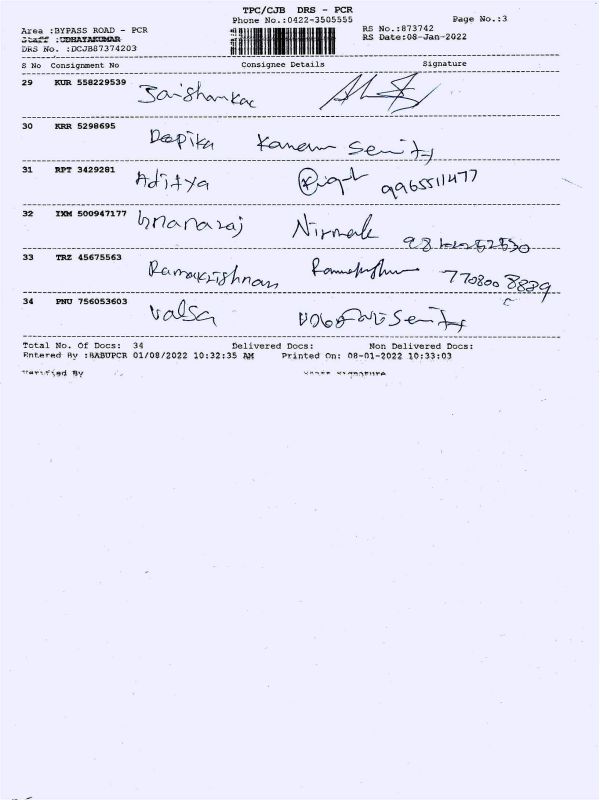 TPC/CJB DRS - PCR
Phone No.:0422-3505555 Page No.:3
Area :BYPASS ROAD - PCR RS No.:873742
Staff :UDHAYAKUMAR RS Date:08-Jan-2022
DRS No. :DCJB87374203
S No Consignment No Consignee Details Signature
29 KUR 558229539 Jaishankar
30 KRR 5298695 Deepika
31 RPT 3429281 Aditya 9965511477
32 IXM 500947177 Gnanaraj Nirmala
33 TRZ 45675563 Ramakrishnan 770800 8889
34 PNU 756053603 Valsa
Total No. Of Docs: 34 Delivered Docs: Non Delivered Docs:
Entered By :BABUPCR 01/08/2022 10:32:35 AM Printed On: 08-01-2022 10:33:03
Verified By